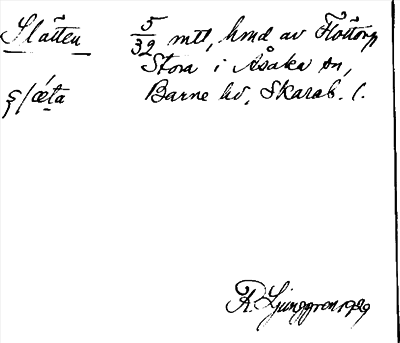 Slätten 5/32 mtl, hmd av Flottorp
Stora i Åsaka sn,
slæta Barne hd, Skarab. l.
R. Ljunggren 1929